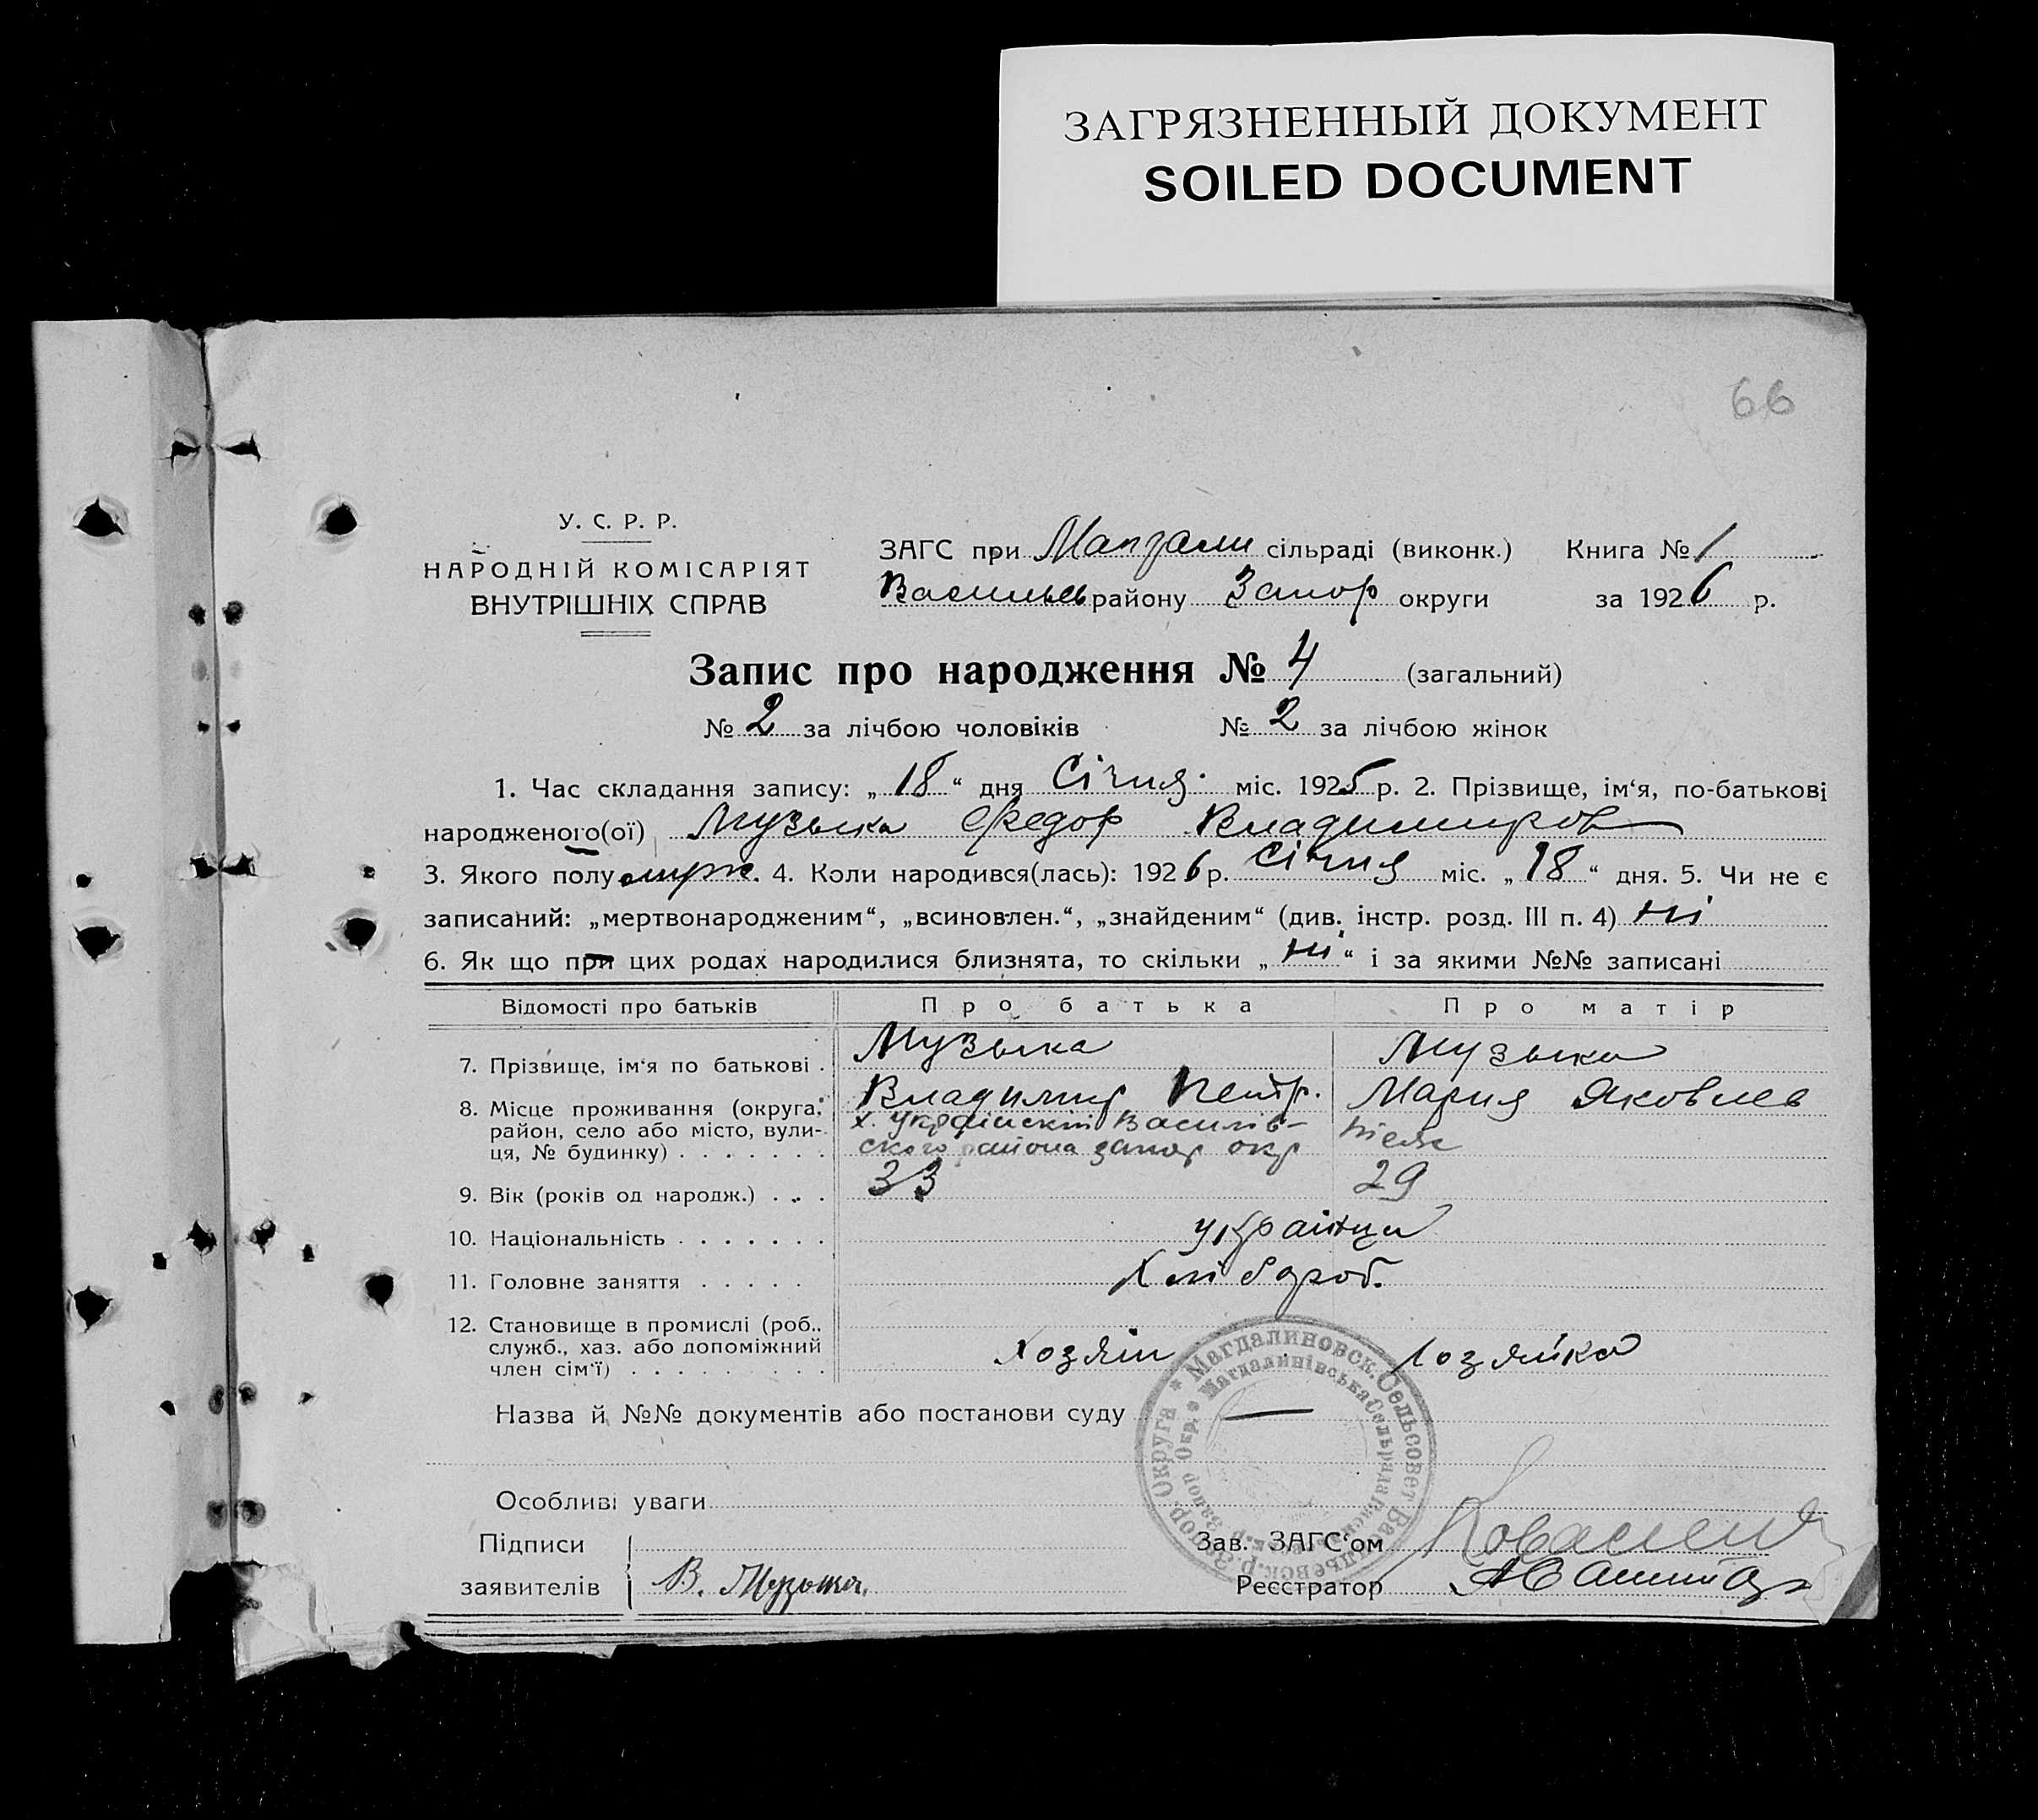 ЗАГРЯЗНЕННЫЙ ДОКУМЕНТ
SOILED DOCUMENT
66
У. С. Р. Р.
НАРОДНІЙ КОМІСАРІЯТ
ВНУТРІШНІХ СПРАВ
ЗАГС при сільраді (виконк.) Книга № 1
Васильев району Запор округи за 1926 р.
Запис про народження № 4 (загальний)
№ 2 за лічбою чоловіків № 2 за лічбою жінок
1. Час складання запису: „18“ дня Січня міс. 1925 р. 2. Прізвище, ім‘я, по-батькові
народженого(ої) Музыка Федор Владимиров
3. Якого полу муж. 4. Коли народився(лась): 1926 р. Січня міс. „18“ дня. 5. Чи не є
записаний: „мертвонародженим“, „всиновлен.“, „знайденим“ (див. інстр. розд. III п. 4) ні
6. Як що при цих родах народилися близнята, то скільки „ні“ і за якими №№ записані
Відомості про батьків Про батька Про матір
7. Прізвище, ім‘я по батькові . Музыка Музыка
Владимир Петр. Мария Яковлев
8. Місце проживання (округа, х. Український Василів-
район, село або місто, вули- ского района запор окр
ця, № будинку) . . . . . . .
9. Вік (років од народж.) . . . 33 29
10. Національність . . . . . . . українци
11. Головне заняття . . . . . Хлібороб.
12. Становище в промислі (роб.,
служб., хаз. або допоміжний хозяін хозяйка
член сім‘ї) . . . . . . . . .
Назва й №№ документів або постанови суду —
Особливі уваги
Підписи Зав. ЗАГС‘ом
заявителів В. Музыка. Реєстратор
Магдалиновск. Сельсовет Васильевск.р. Запор. Округа
Магдалинівська Сельрада Запор Окр.